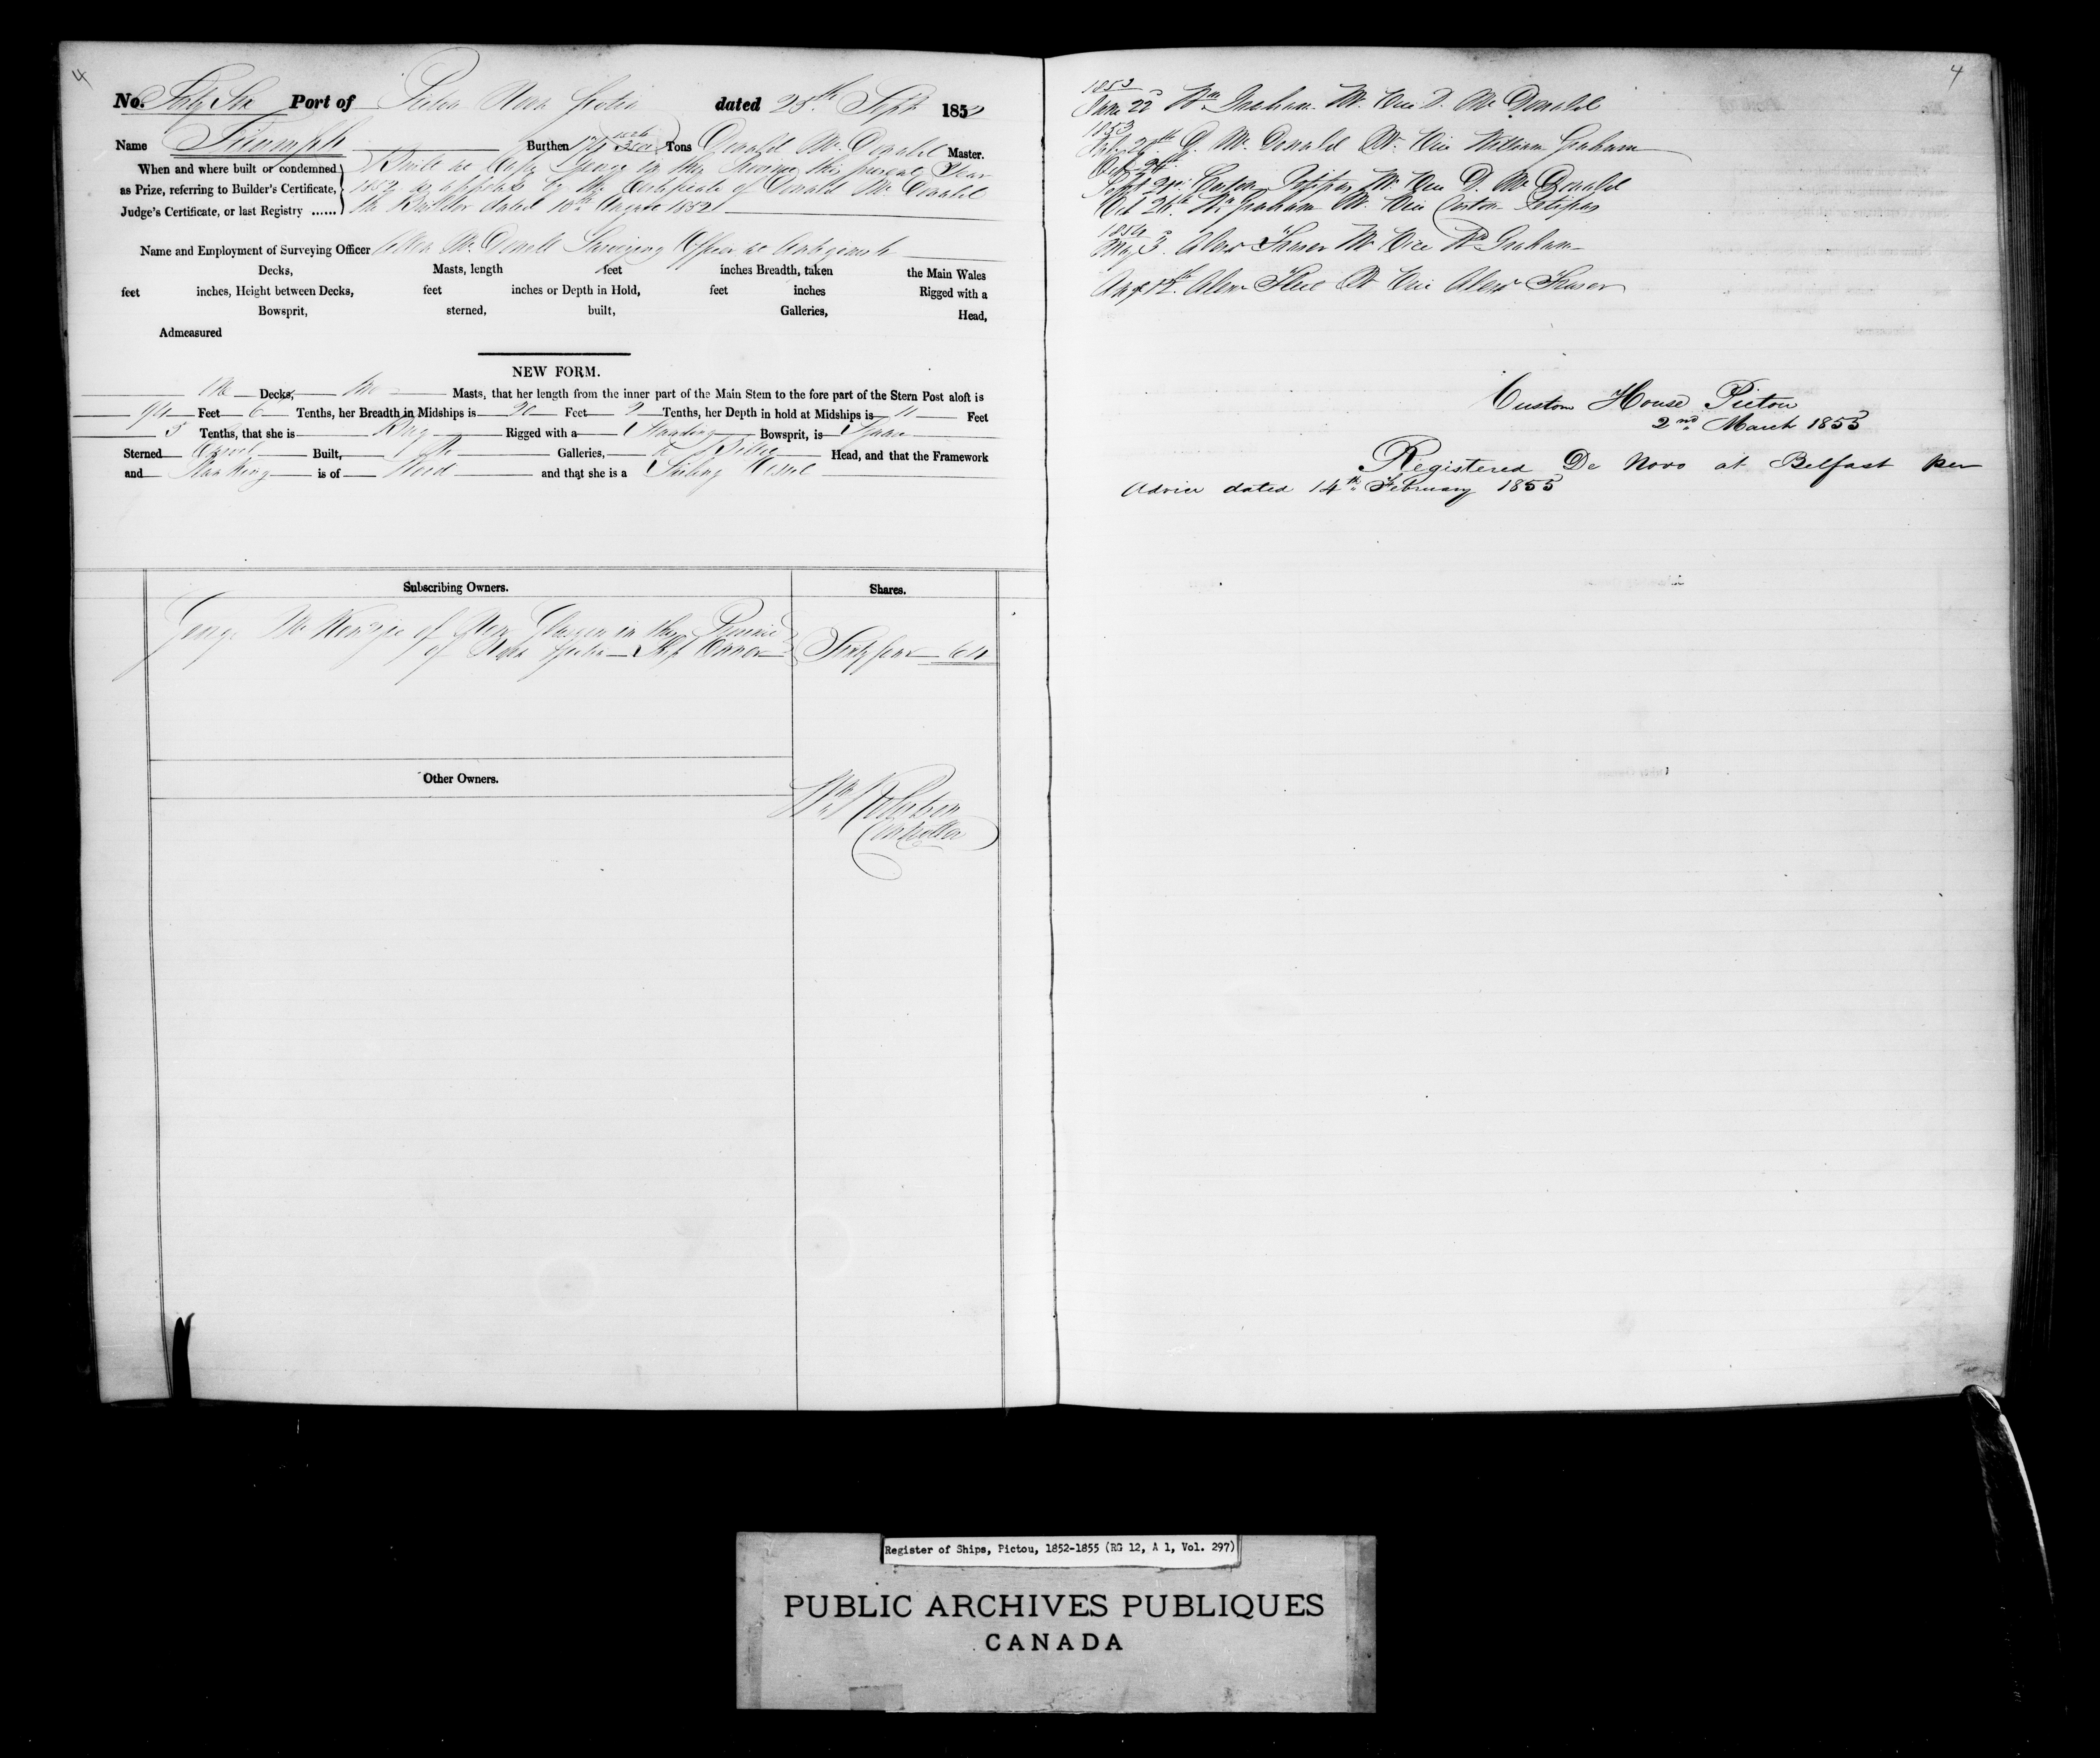 4
No. Forty Six Port of Pictou Nova Scotia dated 28th Sept 1852
Name Triumph Burthen Tons Donald McDonald Master.
When and where built or condemned
as Prize, referring to Builder's Certificate,
Judge's Certificate, or last Registry ......
Built at Cape George in this Province this present Year
1852 as appears by the Certificate of Donald McDonald
the Builder dated 10th August 1852
Name and Employment of Surveying Officer McDonell Surveying Officer at Antigonish
Decks, Masts, length feet inches Breadth, taken the Main Wales
feet inches, Height between Decks, feet inches or Depth in Hold, feet inches Rigged with a
Bowsprit, sterned, built, Galleries, Head,
Admeasured
NEW FORM.
One Decks, two Masts, that her length from the inner part of the Main Stem to the fore part of the Stern Post aloft is
94 Feet 6 Tenths, her Breadth in Midships is 20 Feet 9 Tenths, her Depth in hold at Midships is 11 Feet
3 Tenths, that she is Brig Rigged with a Standing Bowsprit, is Square
Sterned Carvel Built, No Galleries, a Billet Head, and that the Framework
and Planking is of Wood and that she is a Sailing Vessel
Subscribing Owners. Shares.
George McKenzie of New Glasgow in the Province
of Nova Scotia Ship Owner Sixty four 64
Other Owners.
Wm Robertson
Controller
4
1853
June 22 Wm Graham Mr Vice D. McDonald
1853
28th D. McDonald Mr Vice William Graham
Sept 21st Petipas Mr Vice D. McDonald
Oct 26th Wm Graham Mr Vice Petipas
1854
May 3 Alexr Fraser Mr Vice Wm Graham
Alexr Mr Vice Alexr Fraser
Custom House Pictou
2nd March 1855
Registered De Novo at Belfast per
Advice dated 14th February 1855
Register of Ships, Pictou, 1852-1855 (RG 12, A 1, Vol. 297)
PUBLIC ARCHIVES PUBLIQUES
CANADA